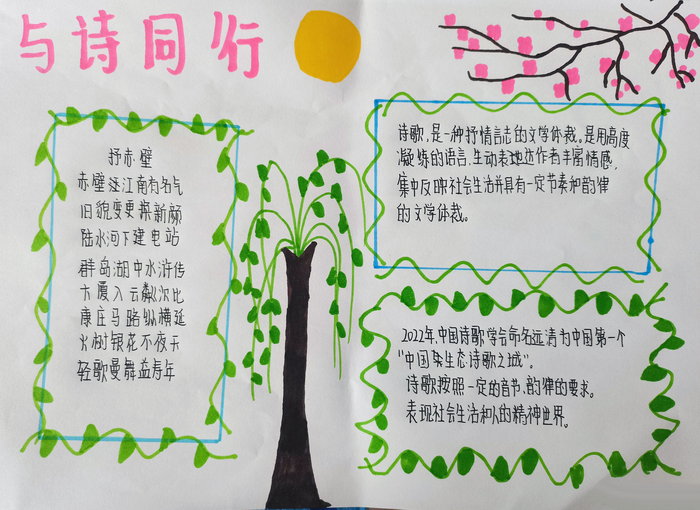 与诗同行
抒赤壁
赤壁泾江南有名气
旧貌变更换新颜
陆水河下建电站
群岛湖中水浒传
大厦入云粼次比
康庄马路纵横延
火树银花不夜天
轻歌曼舞益寿年
诗歌,是一种抒情言志的文学体裁。是用高度
凝炼的语言,生动表地达作者丰富情感,
集中反映社会生活并具有一定节奏和韵律
的文学体裁。
2022年,中国诗歌学会命名远清为中国第一个
"中国生态诗歌之城"。
诗歌按照一定的音节、韵律的要求。
表现社会生活和人的精神世界。